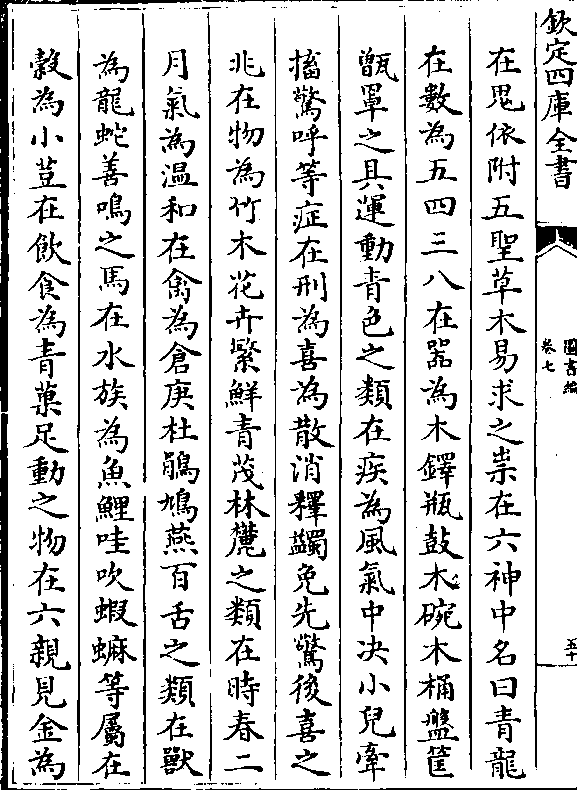 欽定四庫全書
圖書編
卷七
五十
在鬼依附五聖草木易求之祟在六神中名曰青龍
在數為五四三八在器為木鐸瓶鼓木碗木桶盤筐
甑罩之具運動青色之類在疾為風氣中决小兒牽
搐驚呼等症在刑為喜為散消釋蠲免先驚後喜之
兆在物為竹木花卉繁鮮青茂林麓之類在時春二
月氣為温和在禽為倉庚杜鵑鳩燕百舌之類在獸
為龍蛇善鳴之馬在水族為魚鯉哇吹蝦蟆等屬在
穀為小荳在飲食為青菓足動之物在六親見金為